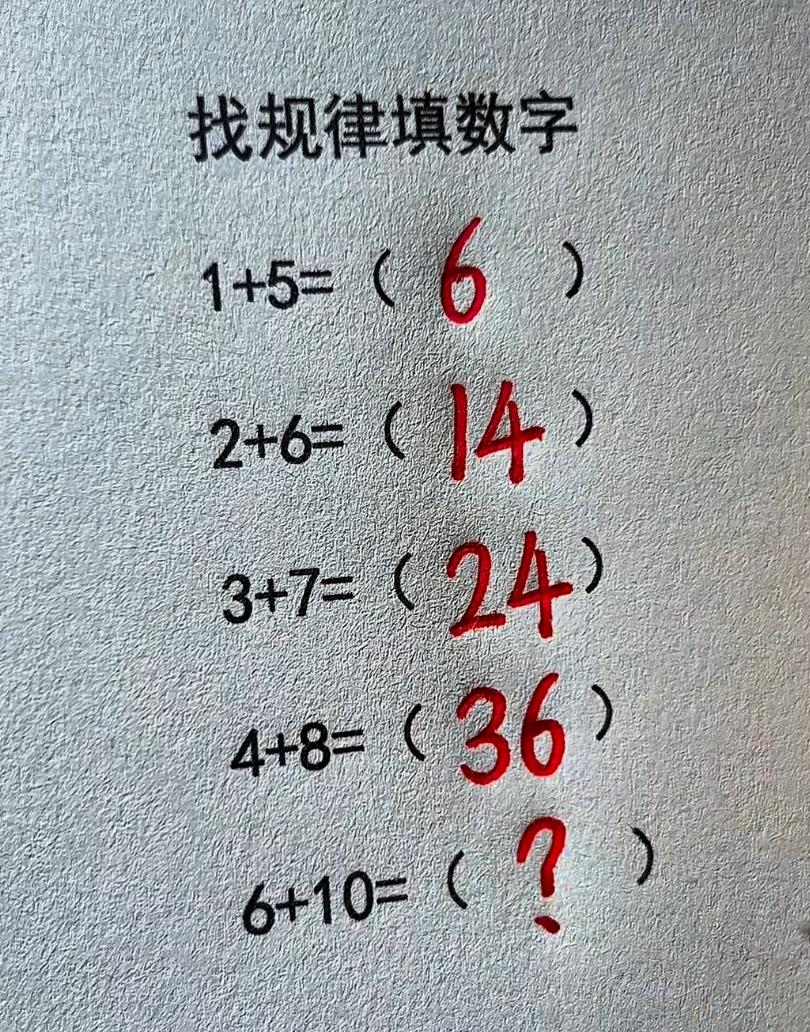 找规律填数字
1+5=( 6 )
2+6=( 14 )
3+7=( 24 )
4+8=( 36 )
6+10=( ? )